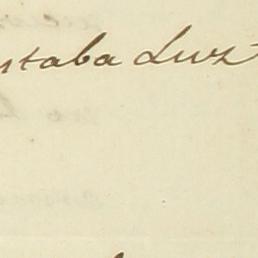 staba Luz